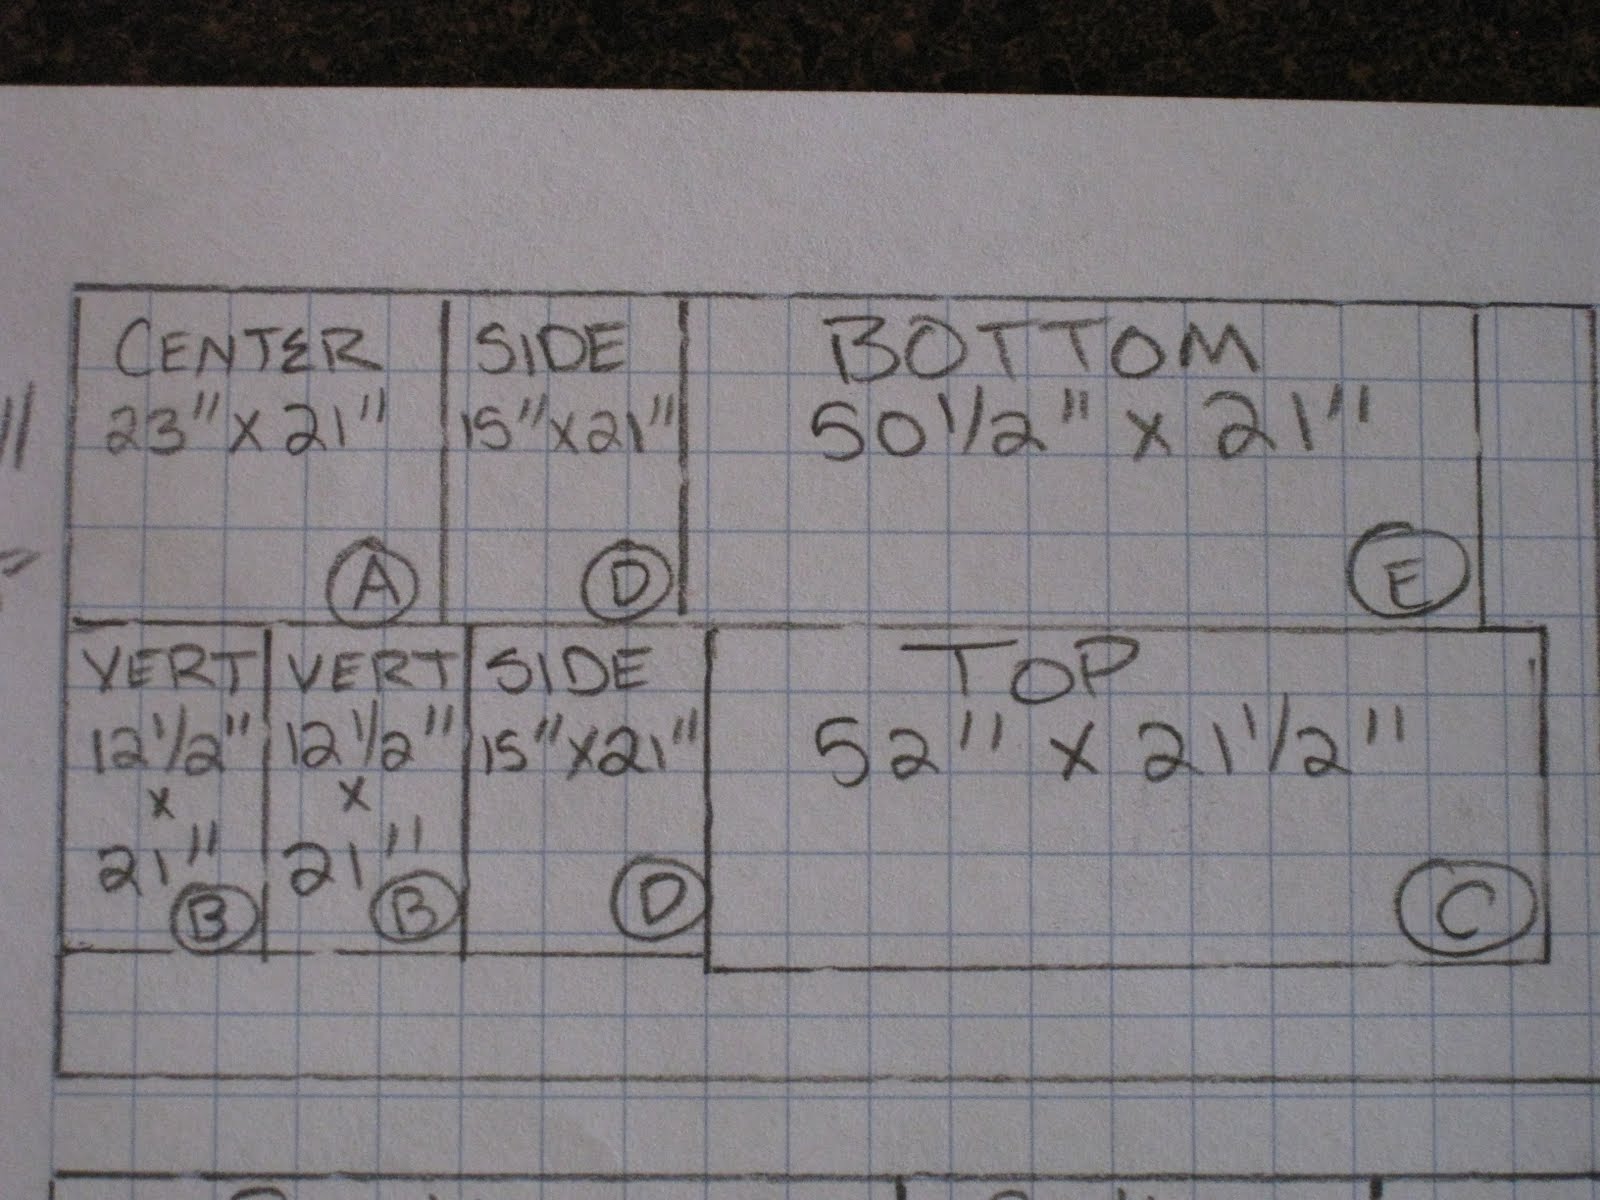 CENTER
23" X 21"
A
SIDE
15" X 21"
D
BOTTOM
50 1/2" X 21"
E
VERT
12 1/2"
X
21"
B
VERT
12 1/2"
X
21"
B
SIDE
15" X 21"
D
TOP
52" X 21 1/2"
C